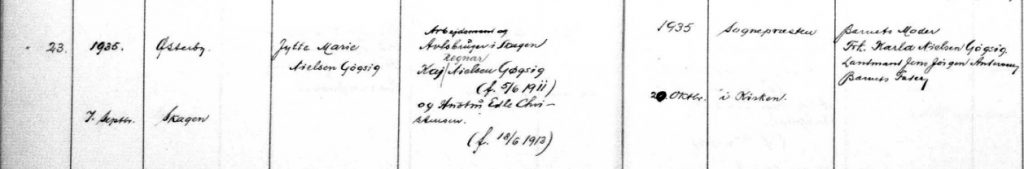 23.
1935.
7. Septbr.
Østerby.
Skagen
Jytte Marie
Nielsen Gøgsig
Arbejdsmand og
Avlsbruger i Skagen
Ragnar
Kaj Nielsen Gøgsig
(f. 5/6 1911)
og Hustru Edle Chri-
stensen.
(f. 18/6 1913)
1935
20. Oktbr.
Sognepræsten
i Kirken.
Barnets Moder
Frk. Karla Nielsen Gøgsig
Landmand Jens Jørgen
Barnets Fader